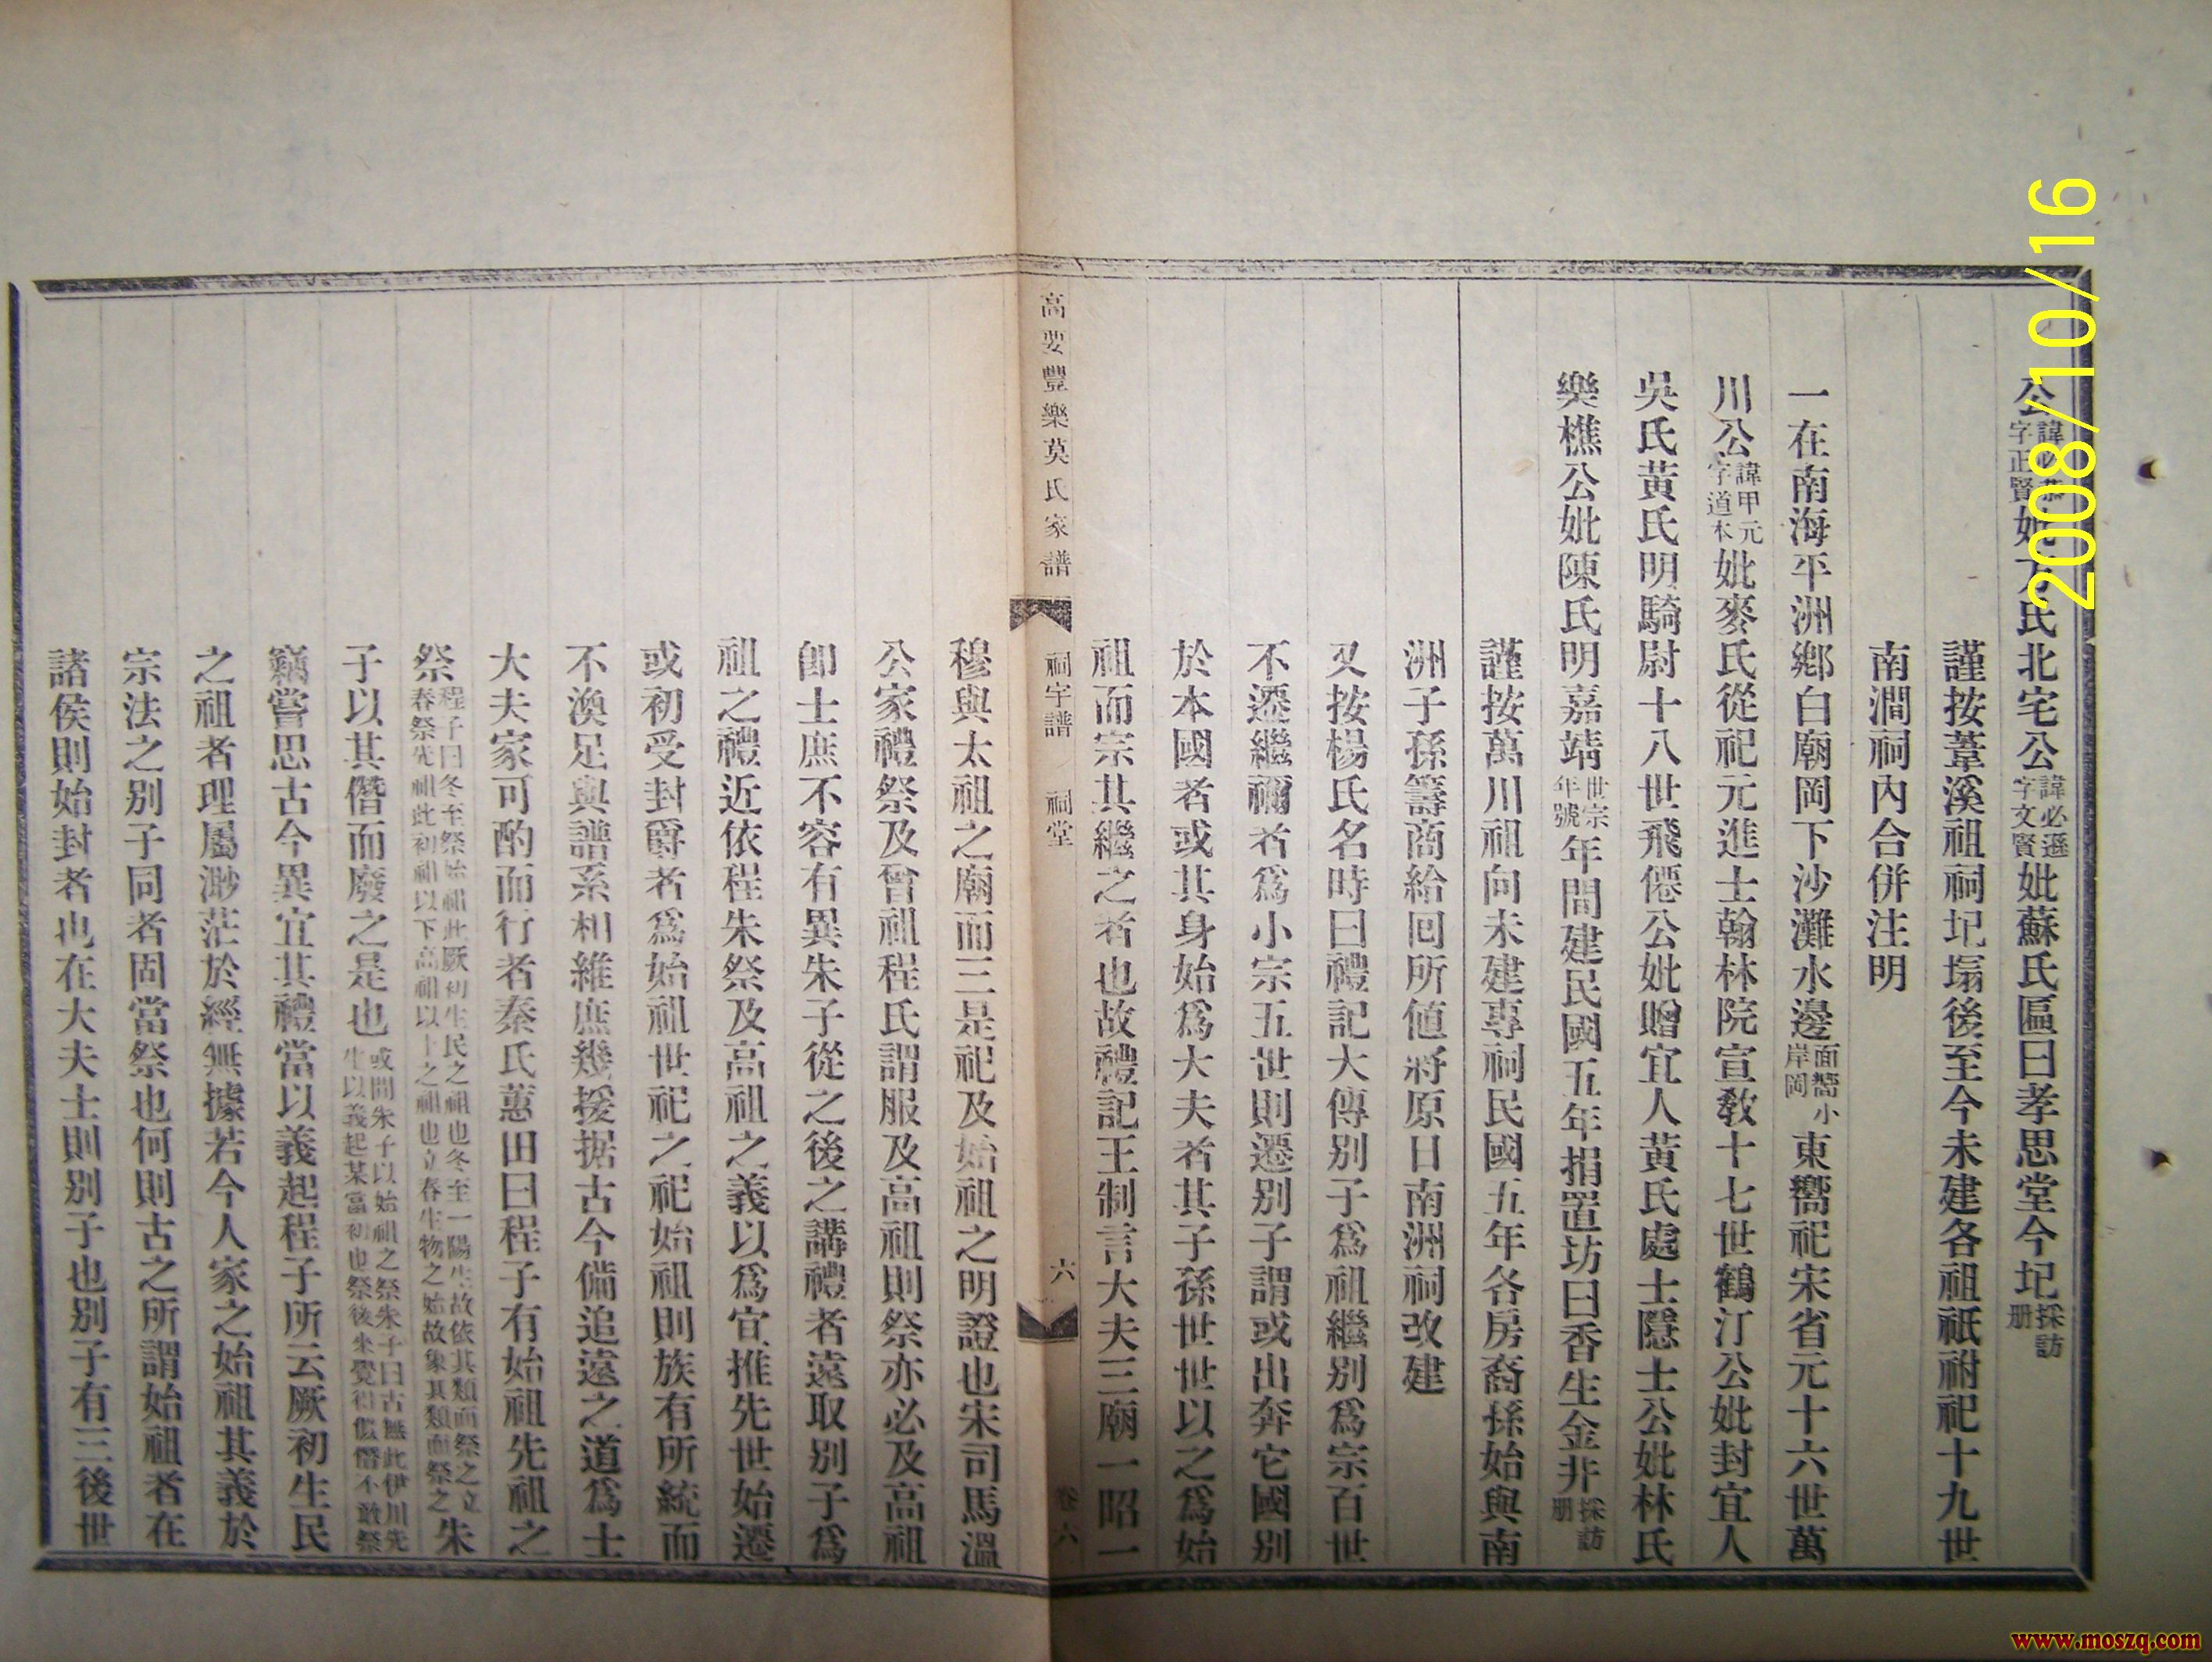 公諱必恭字正賢妣方氏北宅公諱必遜字文賢妣蘇氏匾曰孝思堂今圮採訪册
謹按葦溪祖祠圮塌後至今未建各祖祗祔祀十九世
南澗祠內合併注明
一在南海平洲鄉白廟岡下沙灘水邊面嚮小岸岡東嚮祀宋省元十六世萬
川公諱甲元字道本妣麥氏從祀元進士翰林院宣敎十七世鶴汀公妣封宜人
吳氏黃氏明騎尉十八世飛僊公妣贈宜人黃氏處士隱士公妣林氏
樂樵公妣陳氏明嘉靖世宗年號年間建民國五年捐置坊曰香生金井採訪册
謹按萬川祖向未建專祠民國五年各房裔孫始與南
洲子孫籌商給回所値將原日南洲祠改建
又按楊氏名時曰禮記大傳別子爲祖繼別爲宗百世
不遷繼禰者爲小宗五世則遷別子謂或出奔它國別
於本國者或其身始爲大夫者其子孫世世以之爲始
祖而宗其繼之者也故禮記王制言大夫三廟一昭一
高要豐樂莫氏家譜 祠宇譜 祠堂 六 卷六
穆與太祖之廟而三是祀及始祖之明證也宋司馬溫
公家禮祭及曾祖程氏謂服及高祖則祭亦必及高祖
卽士庶不容有異朱子從之後之講禮者遠取別子爲
祖之禮近依程朱祭及高祖之義以爲宜推先世始遷
或初受封爵者爲始祖世祀之祀始祖則族有所統而
不渙足與譜系相維庶幾援据古今備追遠之道爲士
大夫家可酌而行者秦氏蕙田曰程子有始祖先祖之
祭程子曰冬至祭始祖此厥初生民之祖也冬至一陽生故依其類而祭之立春祭先祖此初祖以下高祖以上之祖也立春生物之始故象其類而祭之朱
子以其僭而廢之是也或問朱子以始祖之祭朱子曰古無此伊川先生以義起某當初也祭後來覺得僭不敢祭
竊嘗思古今異宜其禮當以義起程子所云厥初生民
之祖者理屬渺茫於經無據若今人家之始祖其義於
宗法之別子同者固當祭也何則古之所謂始祖者在
諸侯則始封者也在大夫士則別子也別子有三後世
2008/10/16
www.moszq.com